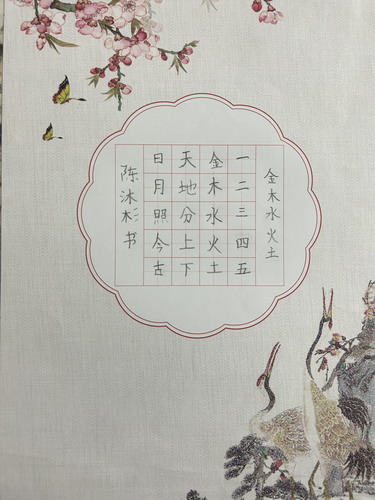 金木水火土
一二三四五
金木水火土
天地分上下
日月照今古
陈沐杉书